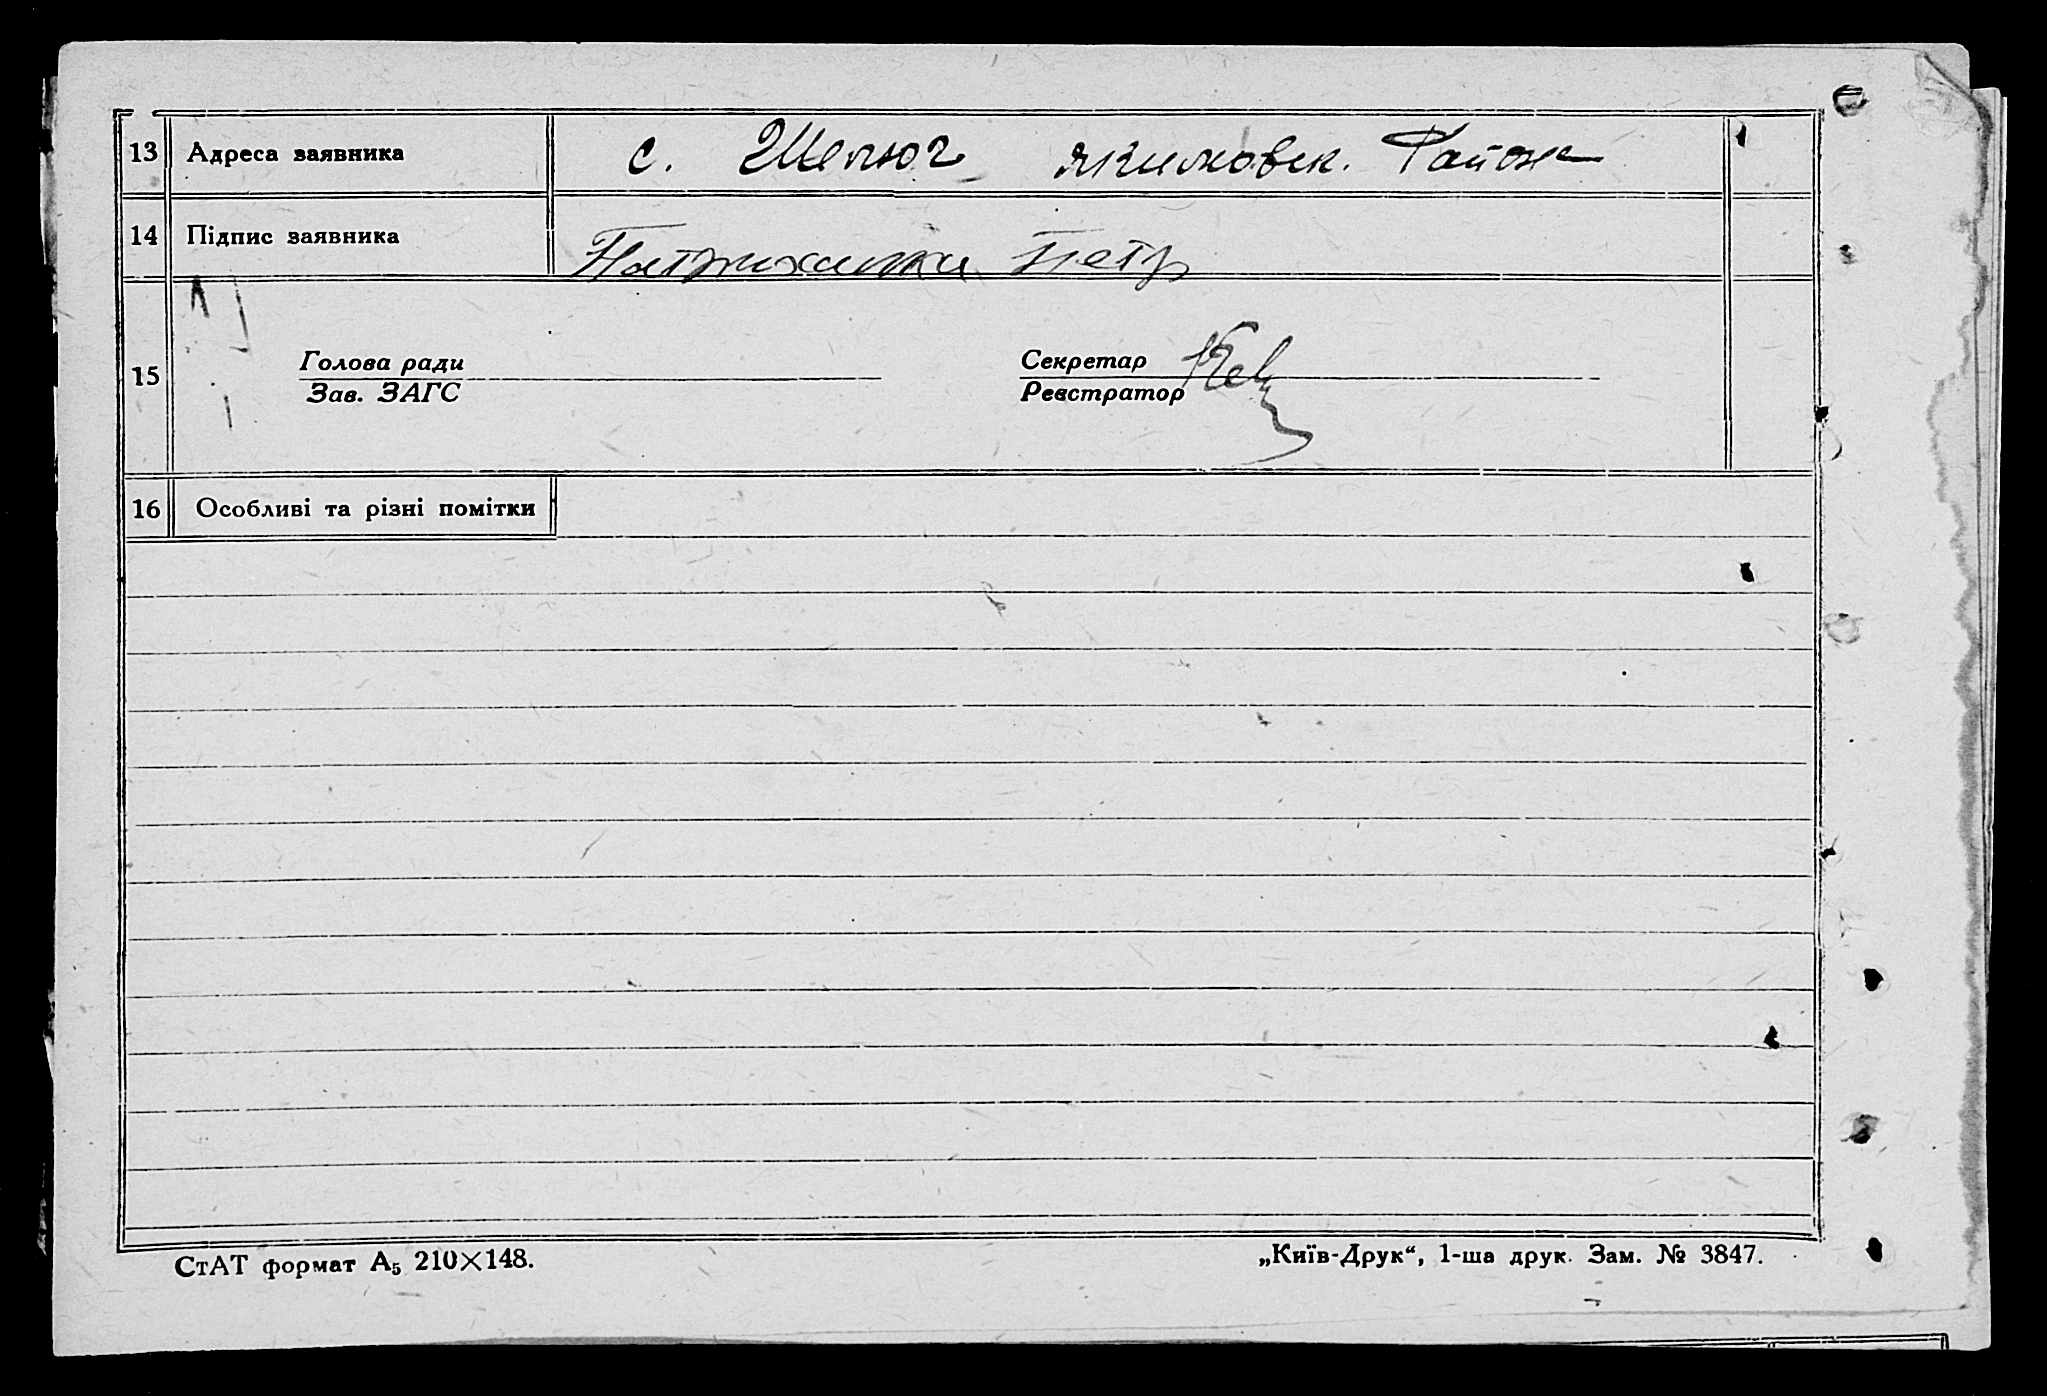 13 Адреса заявника с. Шелюг якимовск. Район
14 Підпис заявника Петр
15 Голова ради Секретар
Зав. ЗАГС Реєстратор
16 Особливі та різні помітки
СтАТ формат А₅ 210×148. „Київ-Друк“, 1-ша друк. Зам. № 3847.